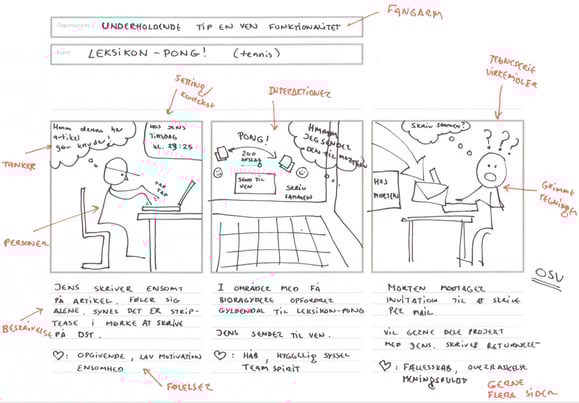 UNDERHOLDENDE TIP EN VEN FUNKTIONALITET
FANGARM
LEKSIKON-PONG! (TENNIS)
SETTING/
KONTEKST
INTERAKTIONER
TEGNESERIE
VIRKEMIDLER
Hmm denne her
artikel
gør knuder!
HOS JENS
TIRSDAG
KL. 23:25
PONG!
200
ANSLAG
HMMMM
JEG SENDER
DEN TIL MORTEN
SEND TIL
VEN
SKRIV
SAMMEN
SKRIV SAMMEN?
? ? ?
HOS
MORTEN
TANKER
PERSONER
GRIMME
TEGNINGER
OSV
JENS SKRIVER ENSOMT
PÅ ARTIKEL. FØLER SIG
ALENE, SYNES DET ER STRIP-
TEASE I MØRKE AT SKRIVE
PÅ DST.
BESKRIVELSE
♡: OPGIVENDE, LAV MOTIVATION
ENSOMHED
FØLELSER
I OMRÅDER MED FÅ
BIDRAGYDERE OPFORDRER
GYLDENDAL TIL LEKSIKON-PONG
JENS SENDER TIL VEN.
♡: HÅB, HYGGELIG SYSSEL
TEAM SPIRIT
MORTEN MODTAGER
INVITATION TIL AT SKRIVE
PER MAIL
VIL GERNE DELE PROJEKT
MED JENS. SKRIVER
♡: FÆLLESSKAB, OVERRASKELSE
MENINGSFULDT
GERNE
FLERE SIDER